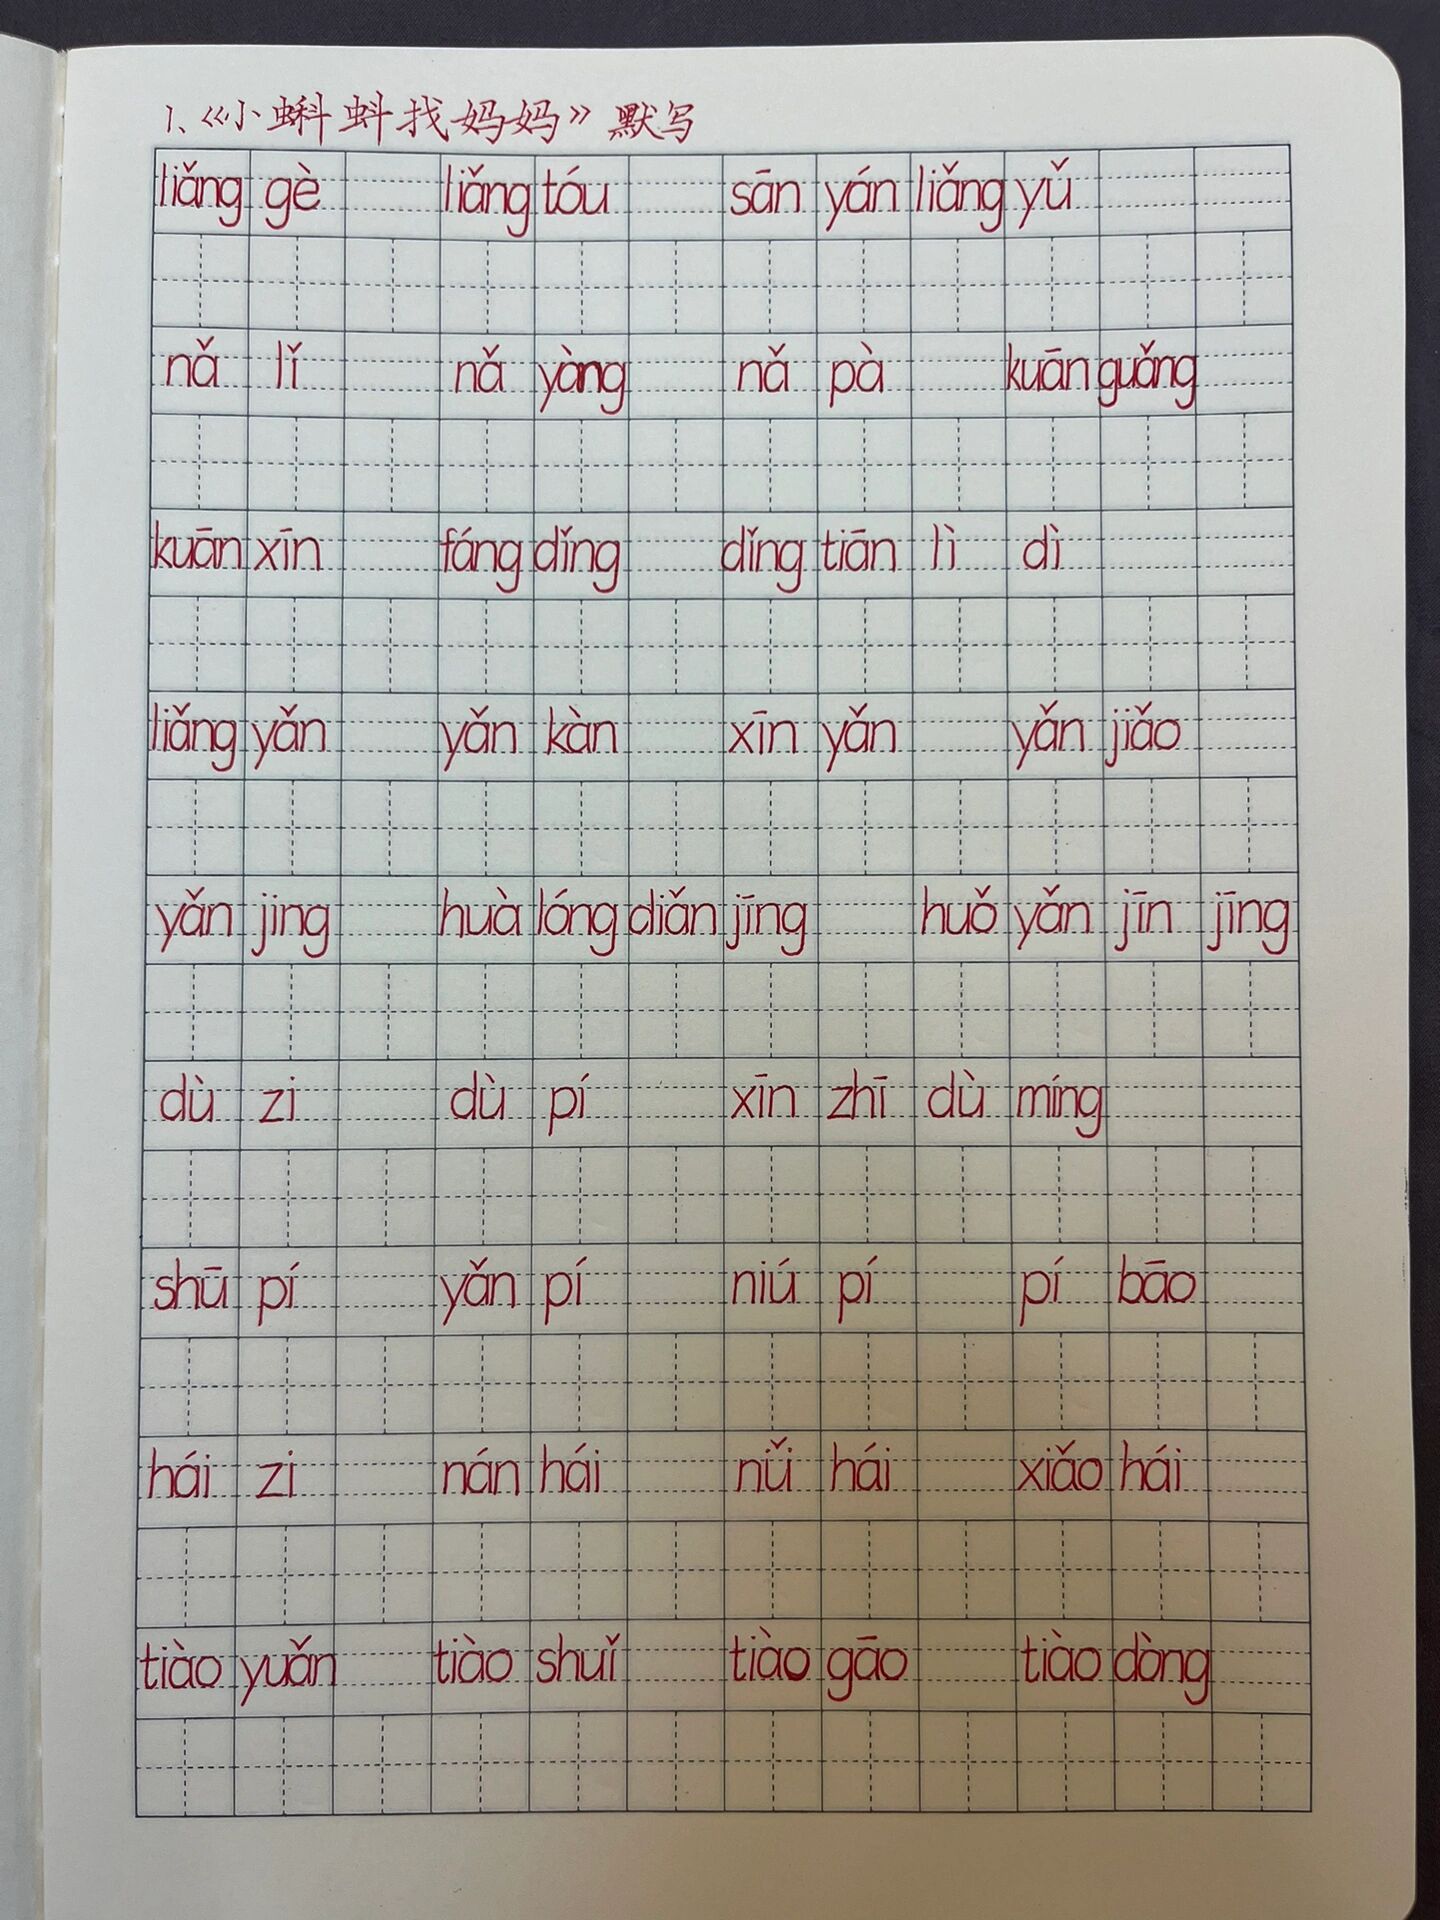 1、《小蝌蚪找妈妈》默写
liǎng gè liǎng tóu sān yán liǎng yǔ
nǎ lǐ nǎ yàng nǎ pà kuān guǎng
kuān xīn fáng dǐng dǐng tiān lì dì
liǎng yǎn yǎn kàn xīn yǎn yǎn jiǎo
yǎn jing huà lóng diǎn jīng huǒ yǎn jīn jīng
dù zi dù pí xīn zhī dù míng
shū pí yǎn pí niú pí pí bāo
hái zi nán hái nǚi hái xiǎo hái
tiào yuǎn tiào shuǐ tiào gāo tiào dòng